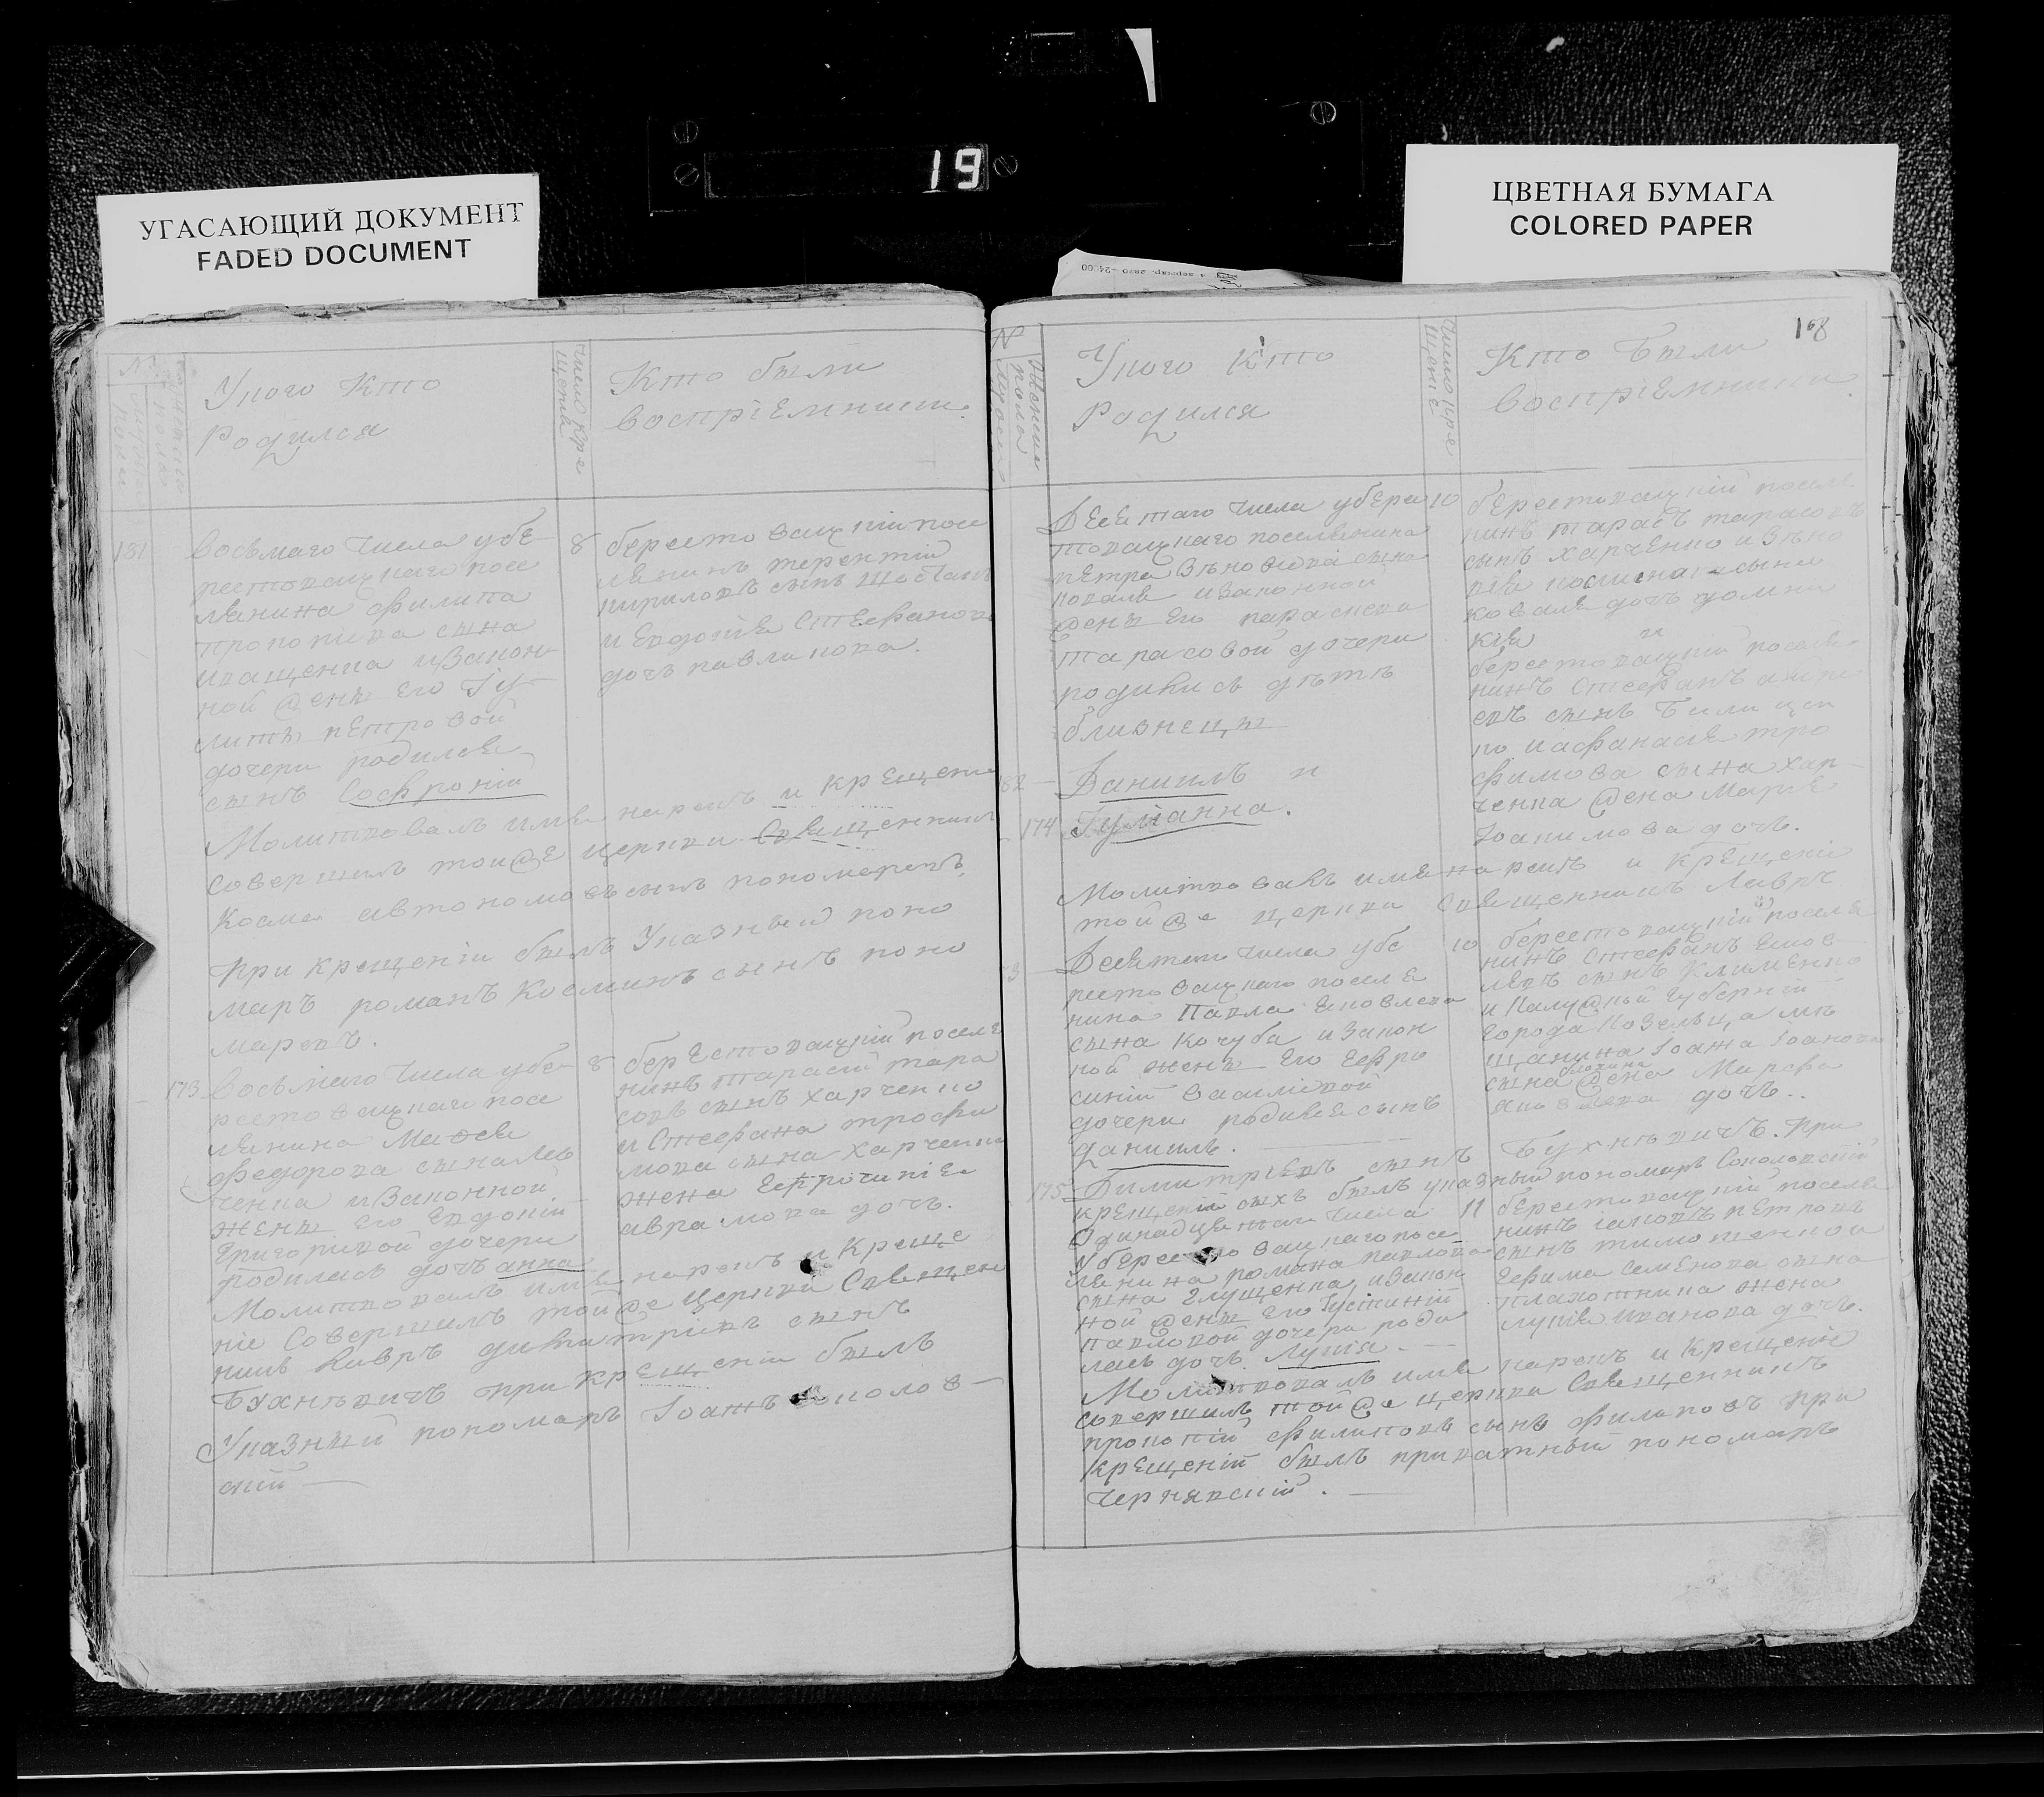 19
УГАСАЮЩИЙ ДОКУМЕНТ
FADED DOCUMENT
ЦВЕТНАЯ БУМАГА
COLORED PAPER
Уного Кто
Родился
число кре
щенія
Кто были
воспріемники.
181
восьмаго числа убе
рестовацкаго посе
лянина филипа
прокопіева сына
иващенка изакон
ной жены его Гу
литы петровой
дочери родился
сынъ Софроній
8
берестовацкій посе
лянинъ терентій
кириловъ сынъ
и Евдокія Стефанова
дочь павликова.
Молитвовалъ имя нарекъ и крещеніе
совершилъ тойже церкви Священникъ
Косма автономовъ сынъ пономаревъ,
при крещеніи былъ Указный поно
маръ романъ Косминъ сынъ поно
маревъ.
173
Восьмаго числа убе
рестовацкаго посе
лянина
федорова сына Лев
ченка изаконной
жены его Евдокіи
Григоріевой дочери
родилась дочь анна
8
берестовацкій поселя
нинъ тарасій тара
совъ сынъ харченко
и Стефана трофи
мова сына харченка
жена Ефросинія
аврамова дочь.
Молитвовалъ имя нарекъ и креще
ніе Совершилъ тойже церкви Священ
никъ Лавръ димитріевъ сынъ
Бухнѣвичъ при крещеніи былъ
Указный пономаръ Іоаннъ Соколов
скій
168
Уного Кто
Родился
Кто Были
воспріемники
Десятаго числа уберес
товацкаго поселянина
петра сына
коваля изаконной
жены его параскевы
тарасовой дочери
родились дѣти
близнецы
182
Даниилъ и
174
Гулианна.
10
берестовацкій поселя
нинъ тарасъ тарасовъ
сынъ харченко
сына
коваля дочь домни
кія и
берестовацкій поселя
нинъ Стефанъ
евъ сынъ
ко иафанасія тро
фимова сына хар
ченка жена Марія
Іоакимова дочь.
Молитвовалъ имя нарекъ и крещеніе
тойже церкви Священникъ Лавръ
3
Десятаго числа убе
рестовацкаго поселя
нина Павла Яковлева
сына Кочуба изакон
ной жены его Ефро
синіи василіевой
дочери родился сынъ
даніилъ.
10
берестовацкій поселя
нинъ Стефанъ
сынъ Клименко
и Калужской губерніи
города Козельца мѣ
щанина Іоана Іоанова
сына жена Марфа
Яковлева дочь.
Димитріевъ сынъ Бухнѣвичъ. при
крещеніи сихъ былъ указный пономаръ Соколовскій
175
Одинадцатаго числа
уберестовацкаго посе
лянина романа павлова
сына Глущенка изакон
ной жены его Іустиніи
павловой дочери роди
лась дочь Лукія.
11
берестовацкій поселя
нинъ іаковъ петровъ
сынъ тимошенко и
Ефима Семенова сына
плахотника жена
лукія иванова дочь.
Молитвовалъ имя нарекъ и крещеніе
совершилъ тойже церкви Священникъ
прокопій филиповъ сынъ филиповъ при
крещеніи былъ приватный пономаръ
Чернявскій.